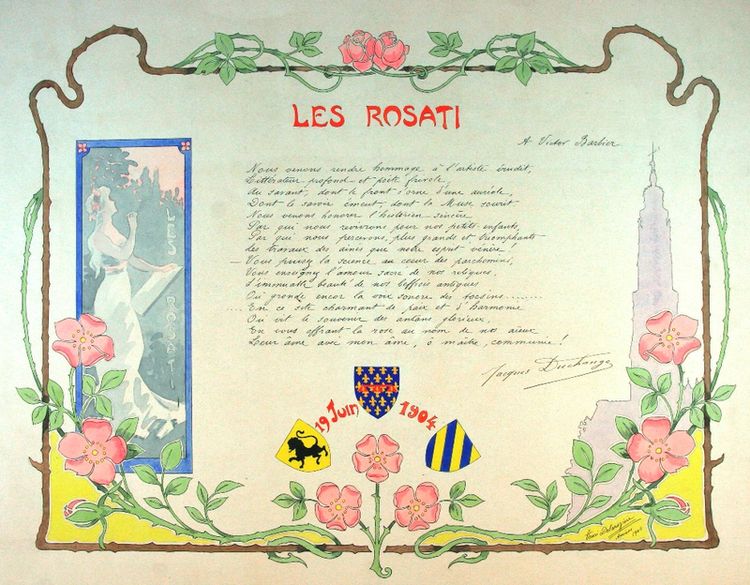 LES ROSATI
A Victor Barbier
Nous venons rendre hommage à l'artiste érudit,
Littérateur profond et poète frivole
Au savant, dont le front s'orne d'une auréole,
Dont le savoir émeut, dont la Muse sourit.
Nous venons honorer l'historien sincère
Par qui nous revivrons pour nos petits-enfants,
Par qui nous percerons, plus grands et triomphants
des travaux des aînés que notre esprit vénère!
— Vous puisez la science au cœur des parchemins,
Vous enseignez l'amour sacré de nos reliques,
L'immuable beauté de nos beffrois antiques
Où gronde encor la voix sonore des tocsins.........
... En ce site charmant de paix et d'harmonie
Où vit le souvenir des antans glorieux,
En vous offrant la rose au nom de nos aïeux
Leur âme avec mon âme, ô maître, communie!
Jacques Duchange
LES ROSATI
19 Juin 1904